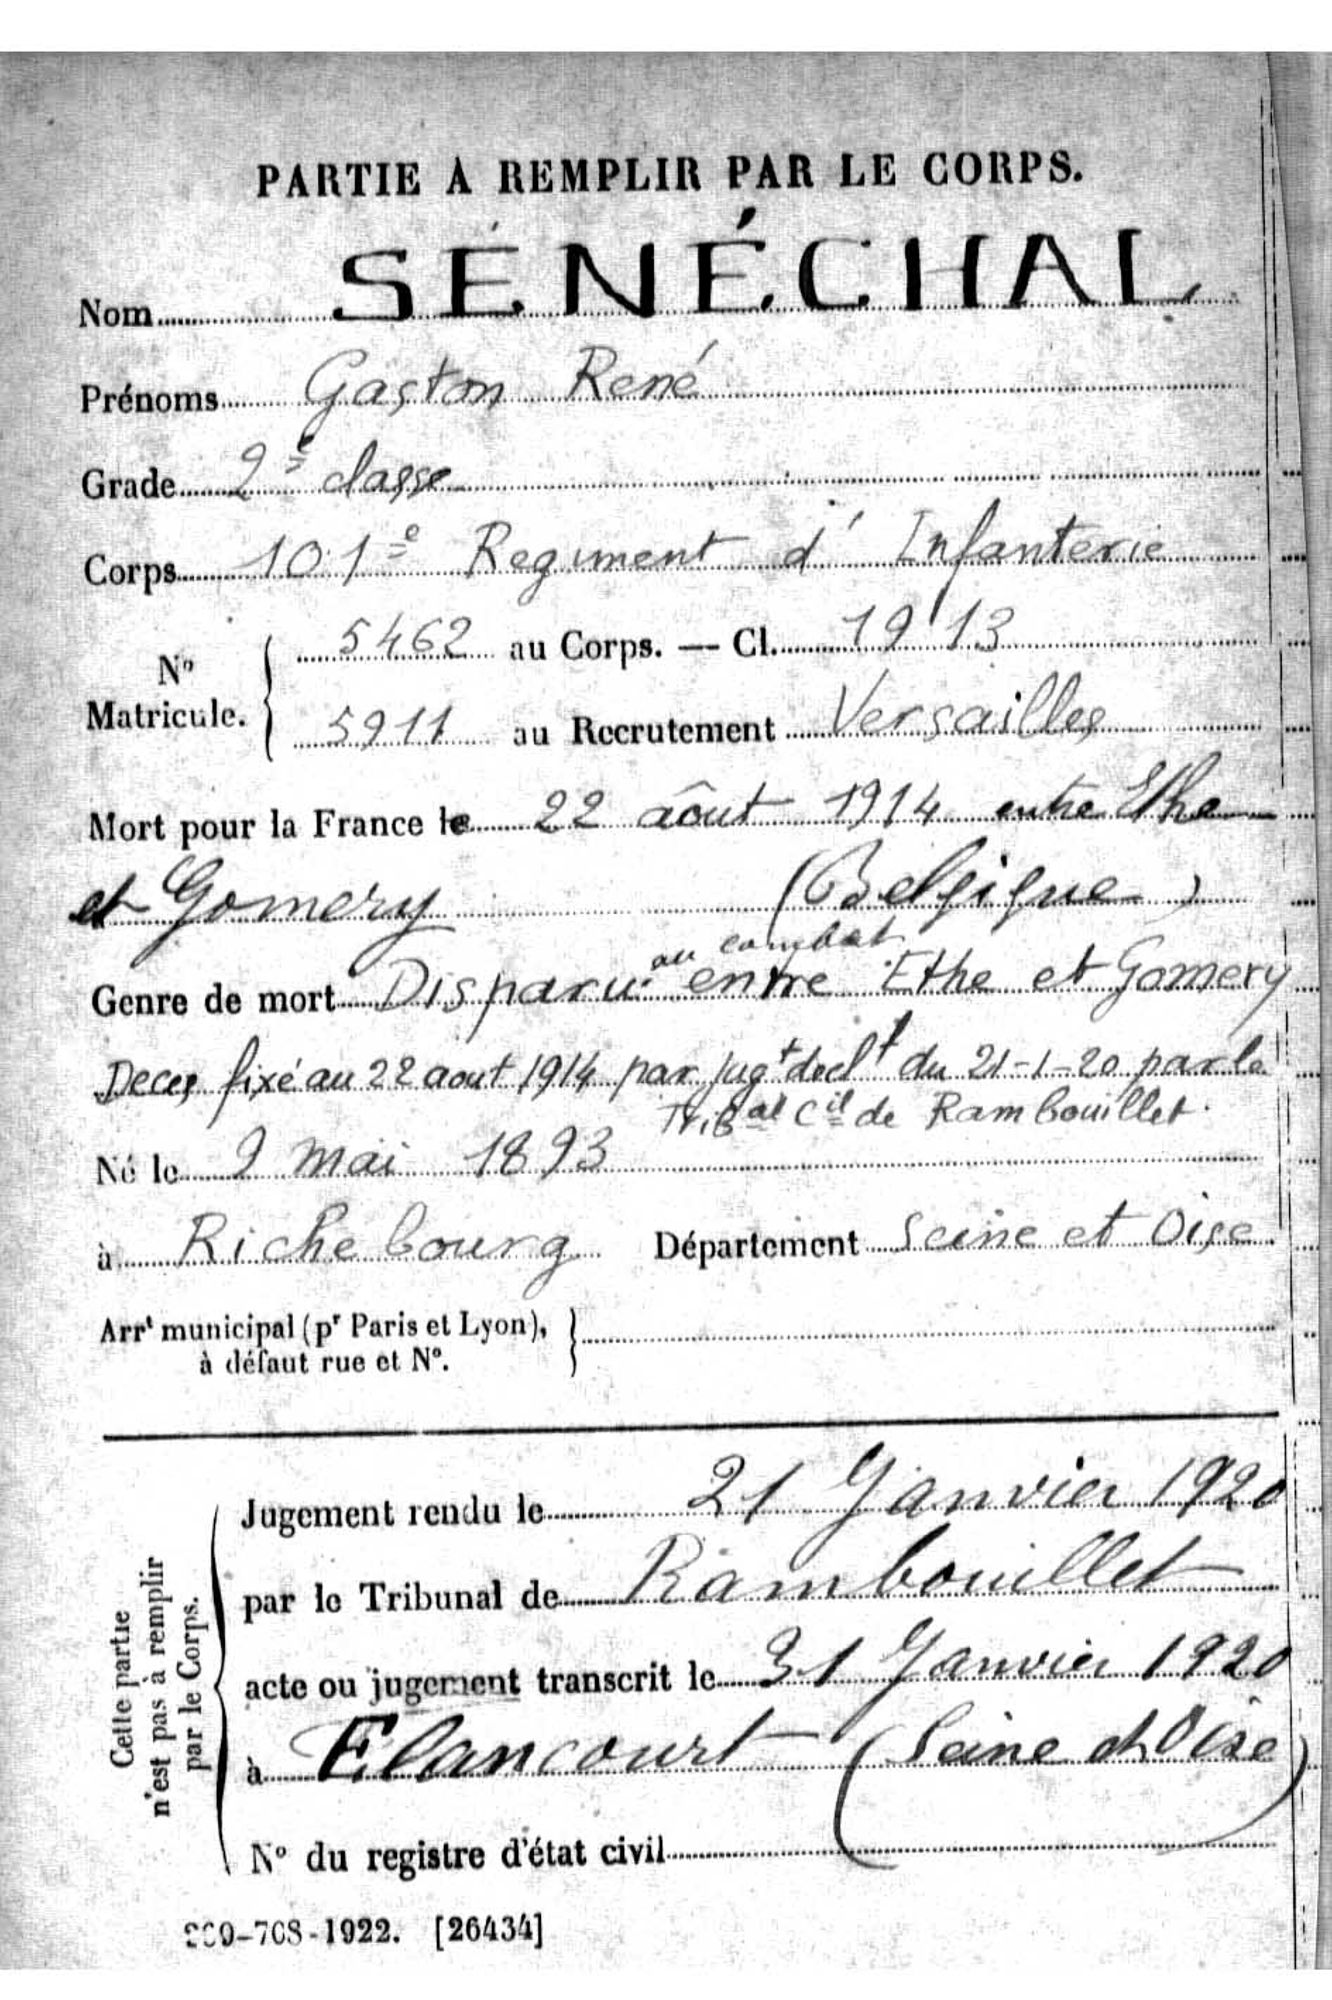 PARTIE À REMPLIR PAR LE CORPS.
Nom SÉNÉCHAL
Prénoms Gaston René
Grade 2e classe
Corps 101e Regiment d'Infanterie
No Matricule. { 5462 au Corps. — Cl. 1913
5911 au Recrutement Versailles
Mort pour la France le 22 aôut 1914 entre Ethe
et Gomery (Belgique)
au combat
Genre de mort Disparu entre Ethe et Gomery
Deces fixé au 22 aout 1914 par jugt declt du 21-1-20 par le
Tribal Cil de Rambouillet.
Né le 9 mai 1893
à Richebourg Département Seine et Oise
Arrt municipal (pr Paris et Lyon), }
à défaut rue et No.
Cette partie
n'est pas à remplir
par le Corps.
Jugement rendu le 21 Janvier 1920
par le Tribunal de Rambouillet
acte ou jugement transcrit le 31 Janvier 1920
à Elancourt (Seine et Oise)
No du registre d'état civil
-708-1922. [26434]